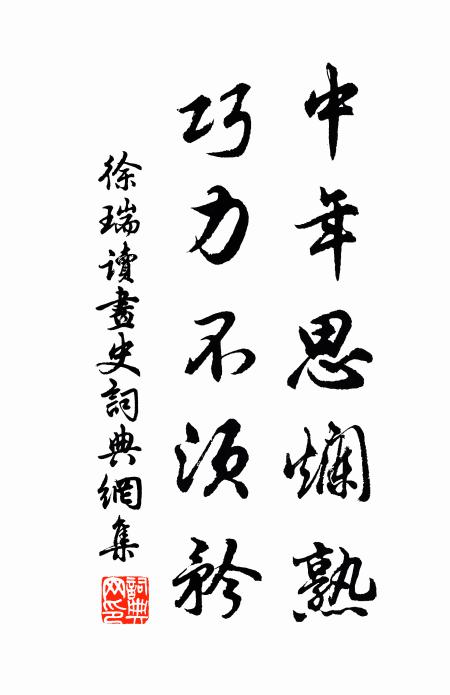 中年思爛熟
巧力不須矜
徐瑞讀畫史詞典網集
詞典网印